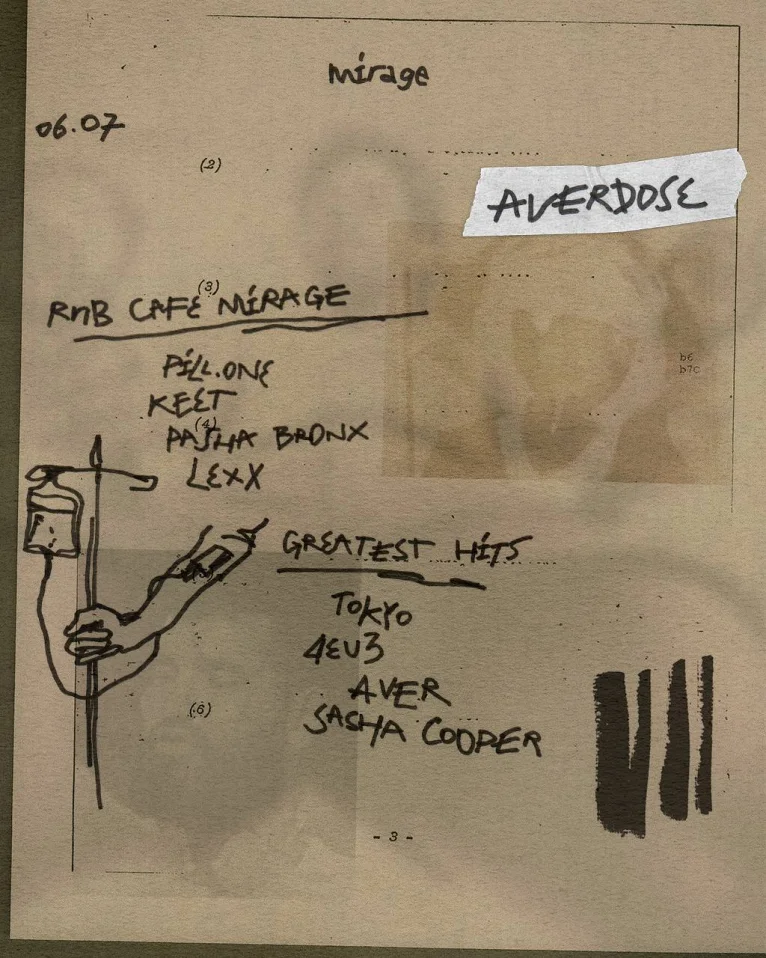 mirage
06.07
(2)
AVERDOSE
(3)
RnB CAFE MIRAGE
b6
b7C
PILL.ONE
KEET
(4)
PASHA BRONX
LEXX
GREATEST HITS
TOKYO
4EU3
AVER
(6)
SASHA COOPER
VII
- 3 -